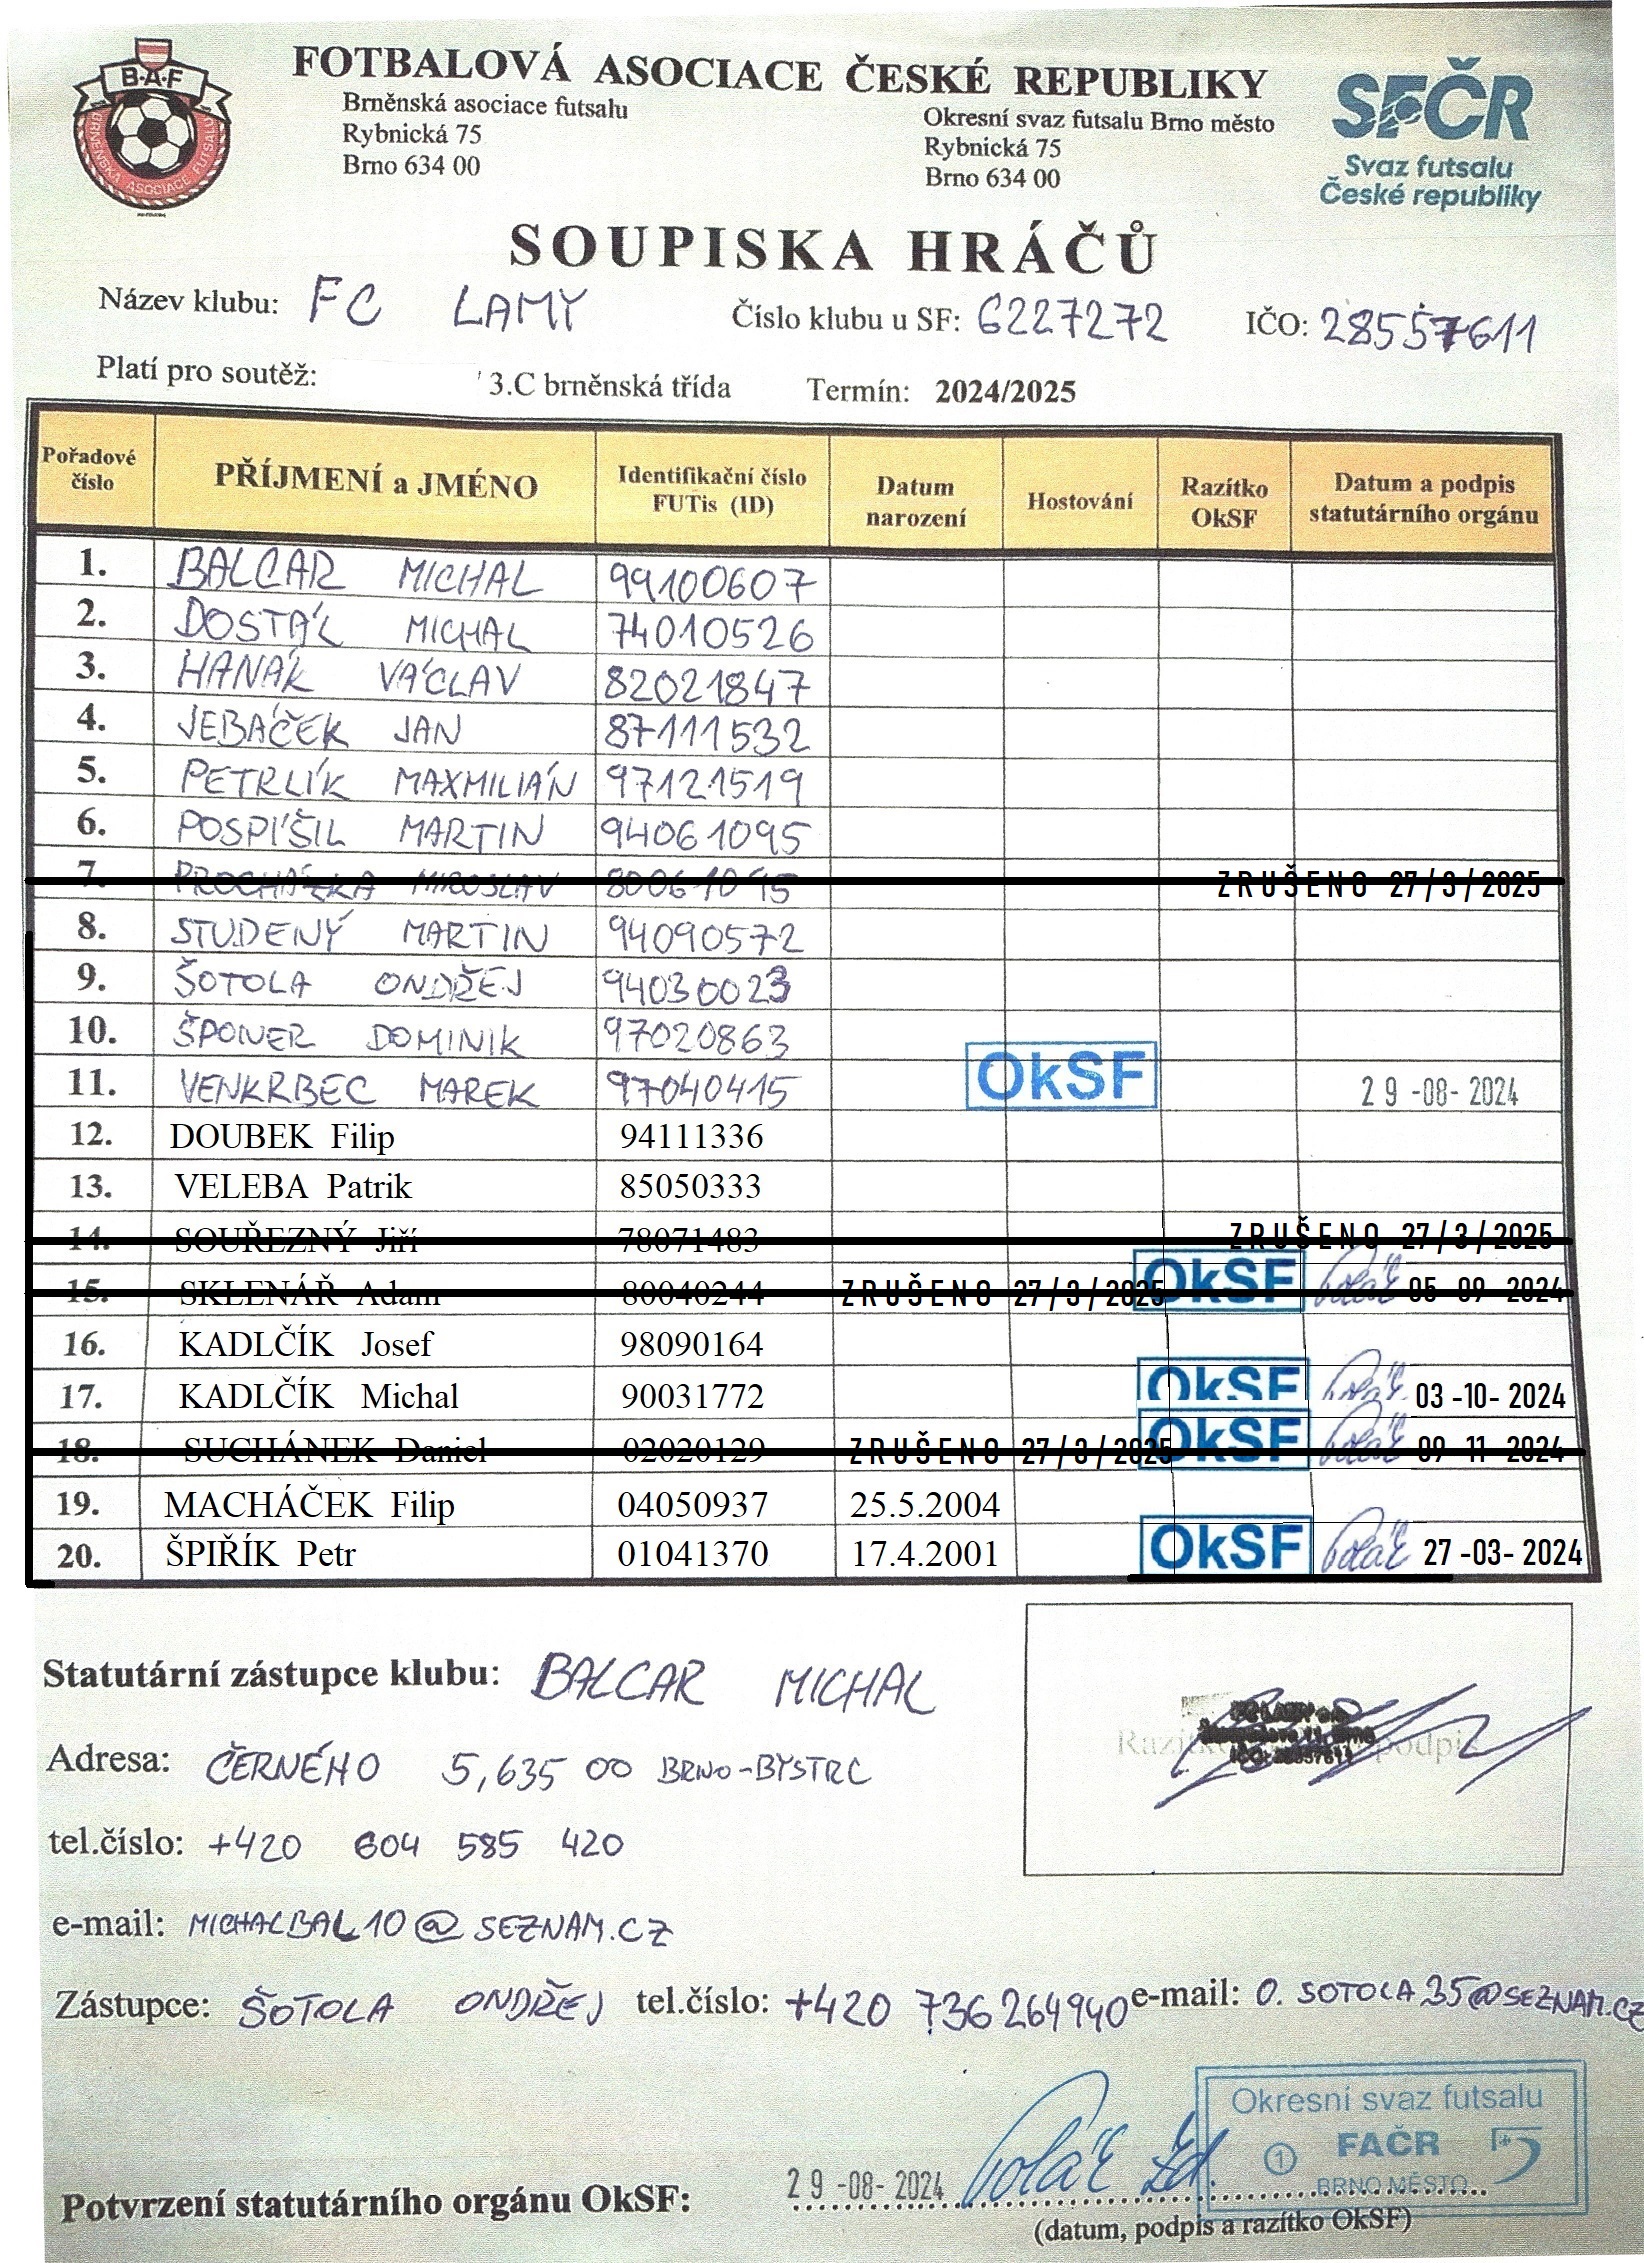 B-A-F
BRNĚNSKÁ ASOCIACE FUTSALU
FOTBALOVÁ ASOCIACE ČESKÉ REPUBLIKY
Brněnská asociace futsalu
Rybnická 75
Brno 634 00
Okresní svaz futsalu Brno město
Rybnická 75
Brno 634 00
SFČR
Svaz futsalu
České republiky
SOUPISKA HRÁČŮ
Název klubu: FC LAMY Číslo klubu u SF: 6227272 IČO: 28557611
Platí pro soutěž: / 3.C brněnská třída Termín: 2024/2025
Pořadové číslo PŘÍJMENÍ a JMÉNO Identifikační číslo FUTis (ID) Datum narození Hostování Razítko OkSF Datum a podpis statutárního orgánu
1. BALCAR MICHAL 99100607
2. DOSTÁL MICHAL 74010526
3. HANÁK VÁCLAV 82021847
4. JEBÁČEK JAN 87111532
5. PETRLÍK MAXMILIÁN 97121519
6. POSPÍŠIL MARTIN 94061095
7. PROCHÁZKA MIROSLAV 80061015 ZRUŠENO 27/3/2025
8. STUDENÝ MARTIN 94090572
9. ŠOTOLA ONDŘEJ 94030023
10. ŠPONER DOMINIK 97020863
11. VENKRBEC MAREK 97040415 OkSF 29-08-2024
12. DOUBEK Filip 94111336
13. VELEBA Patrik 85050333
14. SOUŘEZNÝ Jiří 78071483 ZRUŠENO 27/3/2025
15. SKLENÁŘ Adam 80040244 ZRUŠENO 27/3/2025 OkSF Polář 05-09-2024
16. KADLČÍK Josef 98090164
17. KADLČÍK Michal 90031772 OkSF 03-10-2024
18. SUCHÁNEK Daniel 02020129 ZRUŠENO 27/3/2025 OkSF 09-11-2024
19. MACHÁČEK Filip 04050937 25.5.2004
20. ŠPIŘÍK Petr 01041370 17.4.2001 OkSF 27-03-2024
Statutární zástupce klubu: BALCAR MICHAL
Adresa: ČERNÉHO 5, 635 00 BRNO-BYSTRC
tel.číslo: +420 604 585 420
e-mail: MICHALBAL10@SEZNAM.CZ
Zástupce: ŠOTOLA ONDŘEJ tel.číslo: +420 736264940 e-mail: O.SOTOLA35@SEZNAM.CZ
Okresní svaz futsalu
1 FAČR
BRNO MĚSTO
Potvrzení statutárního orgánu OkSF: 29-08-2024
(datum, podpis a razítko OkSF)